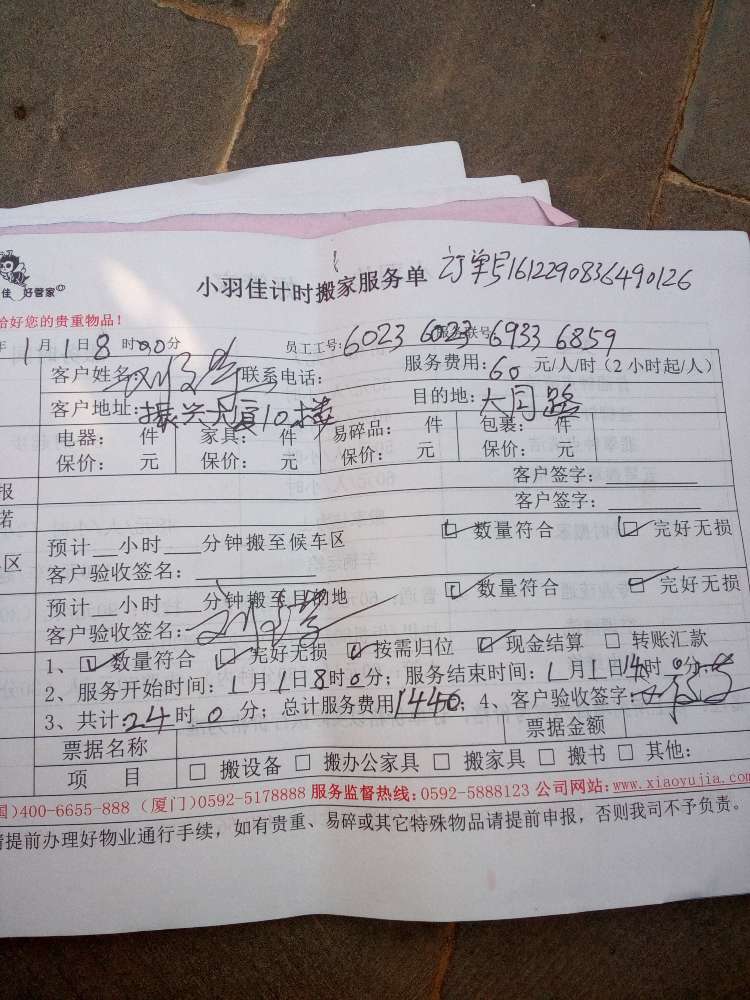 小羽佳计时搬家服务单 订单号161229083649 0126
佳 好管家
给好您的贵重物品!
年1月1日8时00分 员工工号:6023 6023 6933 6859
客户姓名: 联系电话: 服务费用:60元/人/时(2小时起/人)
客户地址:振兴大厦10楼 目的地:大同路
电器: 件 家具: 件 易碎品: 件 包裹: 件
保价: 元 保价: 元 保价: 元 保价: 元
报 客户签字:
诺 客户签字:
区 预计 小时 分钟搬至候车区 数量符合 完好无损
客户验收签名:
预计 小时 分钟搬至目的地 数量符合 完好无损
客户验收签名:
1、数量符合 完好无损 按需归位 现金结算 转账汇款
2、服务开始时间:1月1日8时0分;服务结束时间:1月1日14时0分;
3、共计24时0分;总计服务费用1440;4、客户验收签字:
票据名称 票据金额
项 目 搬设备 搬办公家具 搬家具 搬书 其他:
国)400-6655-888 (厦门)0592-5178888 服务监督热线:0592-5888123 公司网站:www.xiaoyujia.com
请提前办理好物业通行手续,如有贵重、易碎或其它特殊物品请提前申报,否则我司不予负责。